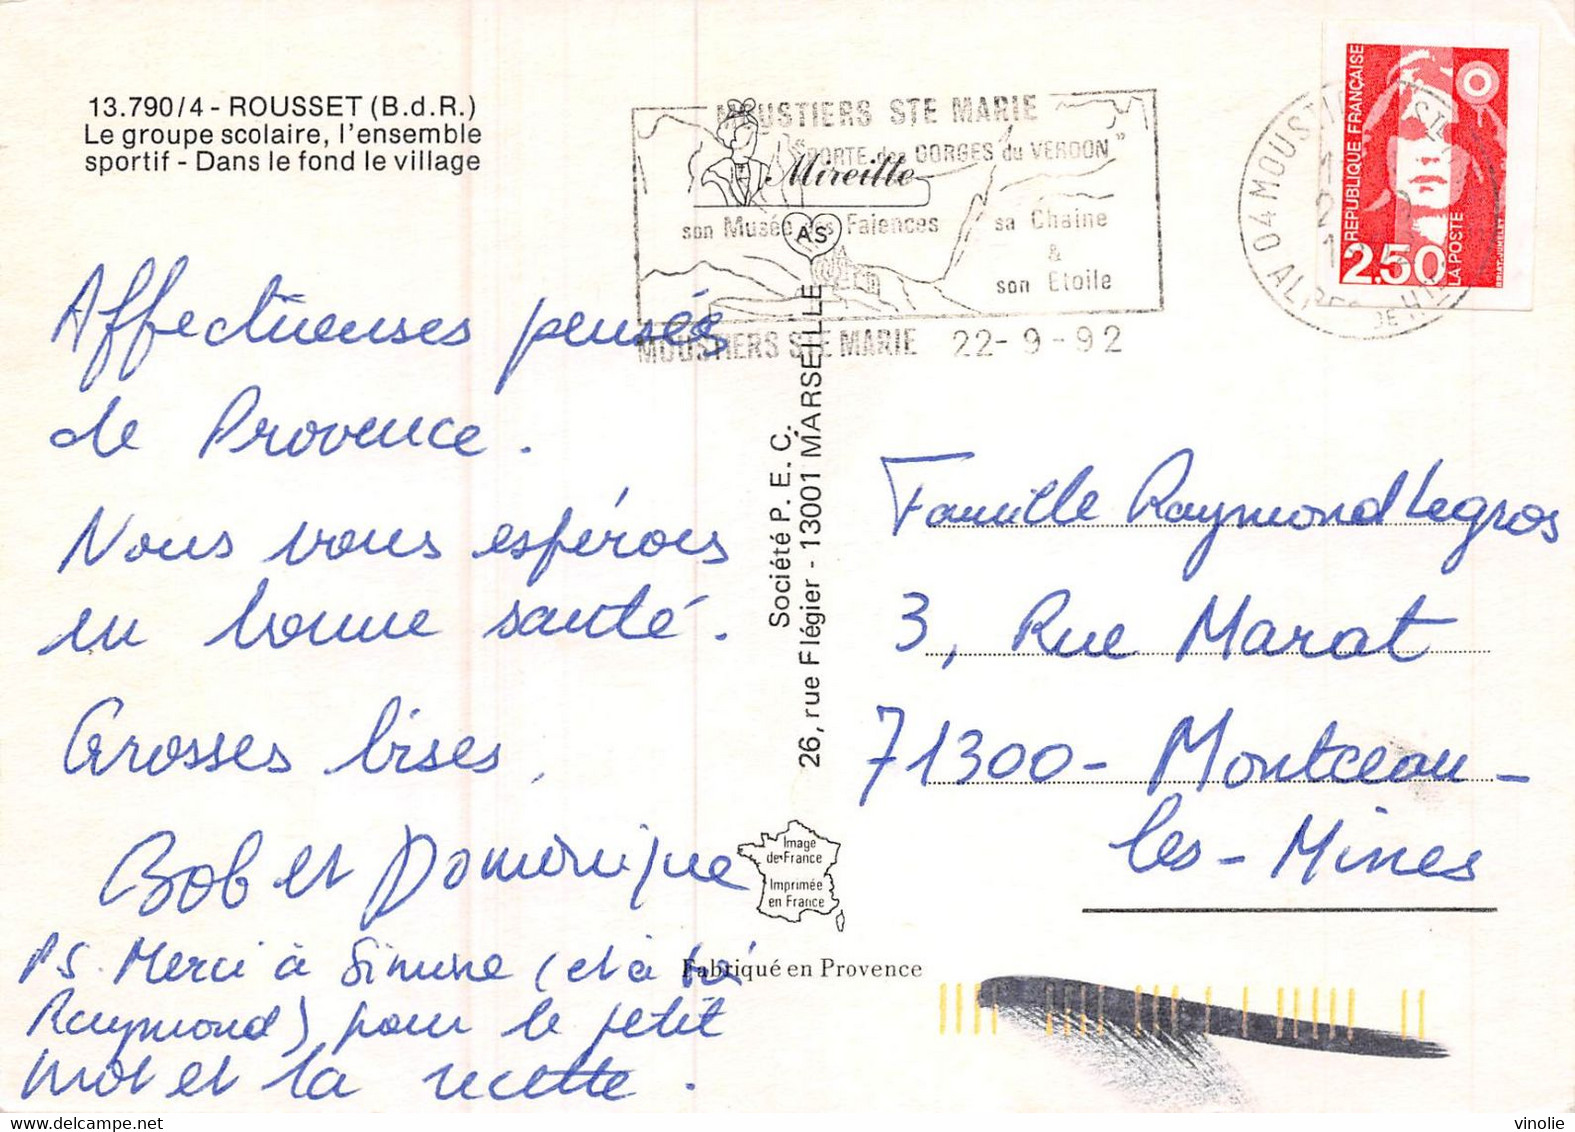 13.790/4 - ROUSSET (B.d.R.)
Le groupe scolaire, l'ensemble
sportif - Dans le fond le village
MOUSTIERS STE MARIE
"PORTE des GORGES du VERDON"
Mireille
son Musée des Faiences
sa Chaine
&
son Etoile
AS
MOUSTIERS STE MARIE 22-9-92
04 MOUSTIERS STE
ALPES DE
REPUBLIQUE FRANÇAISE
2.50
LA POSTE
Affectueuses pensées
de Provence.
Nous vous espérons
en bonne santé.
Grosses bises,
Bob et Dominique
PS. Merci à Simone (et à
Raymond) pour le petit
mot et la recette.
Société P. E. C.
26, rue Flégier - 13001 MARSEILLE
Image
de France
Imprimée
en France
Fabriqué en Provence
Famille Raymond Legros
3, Rue Marat
71300 - Montceau-
les-Mines
vinolie